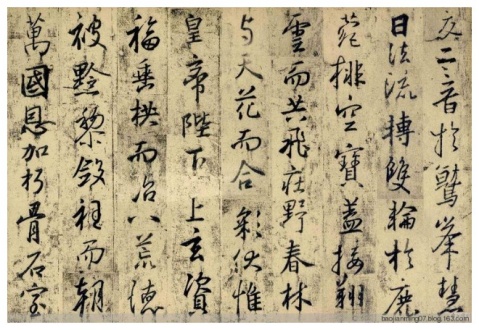 交二音於鷲峯慧
日法流轉雙輪於鹿
菀排空寶蓋接翔
雲而共飛莊野春林
与天花而合彩伏惟
皇帝陛下上玄資
福垂拱而治八荒德
被黔黎斂衽而朝
萬國恩加朽骨石室
baojianming07.blog.163.com